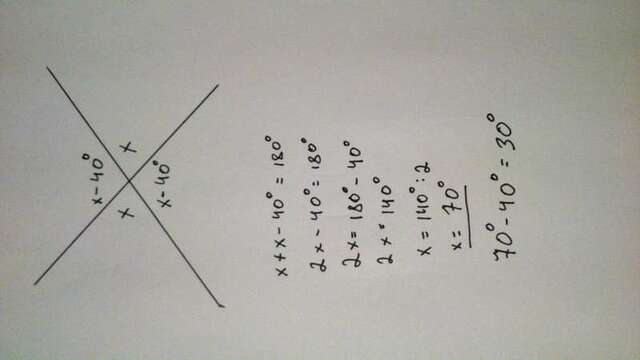 x - 40°
x x
x - 40°
x + x - 40° = 180°
2x - 40° = 180°
2x = 180° - 40°
2x = 140°
x = 140° : 2
x = 70°
70° - 40° = 30°